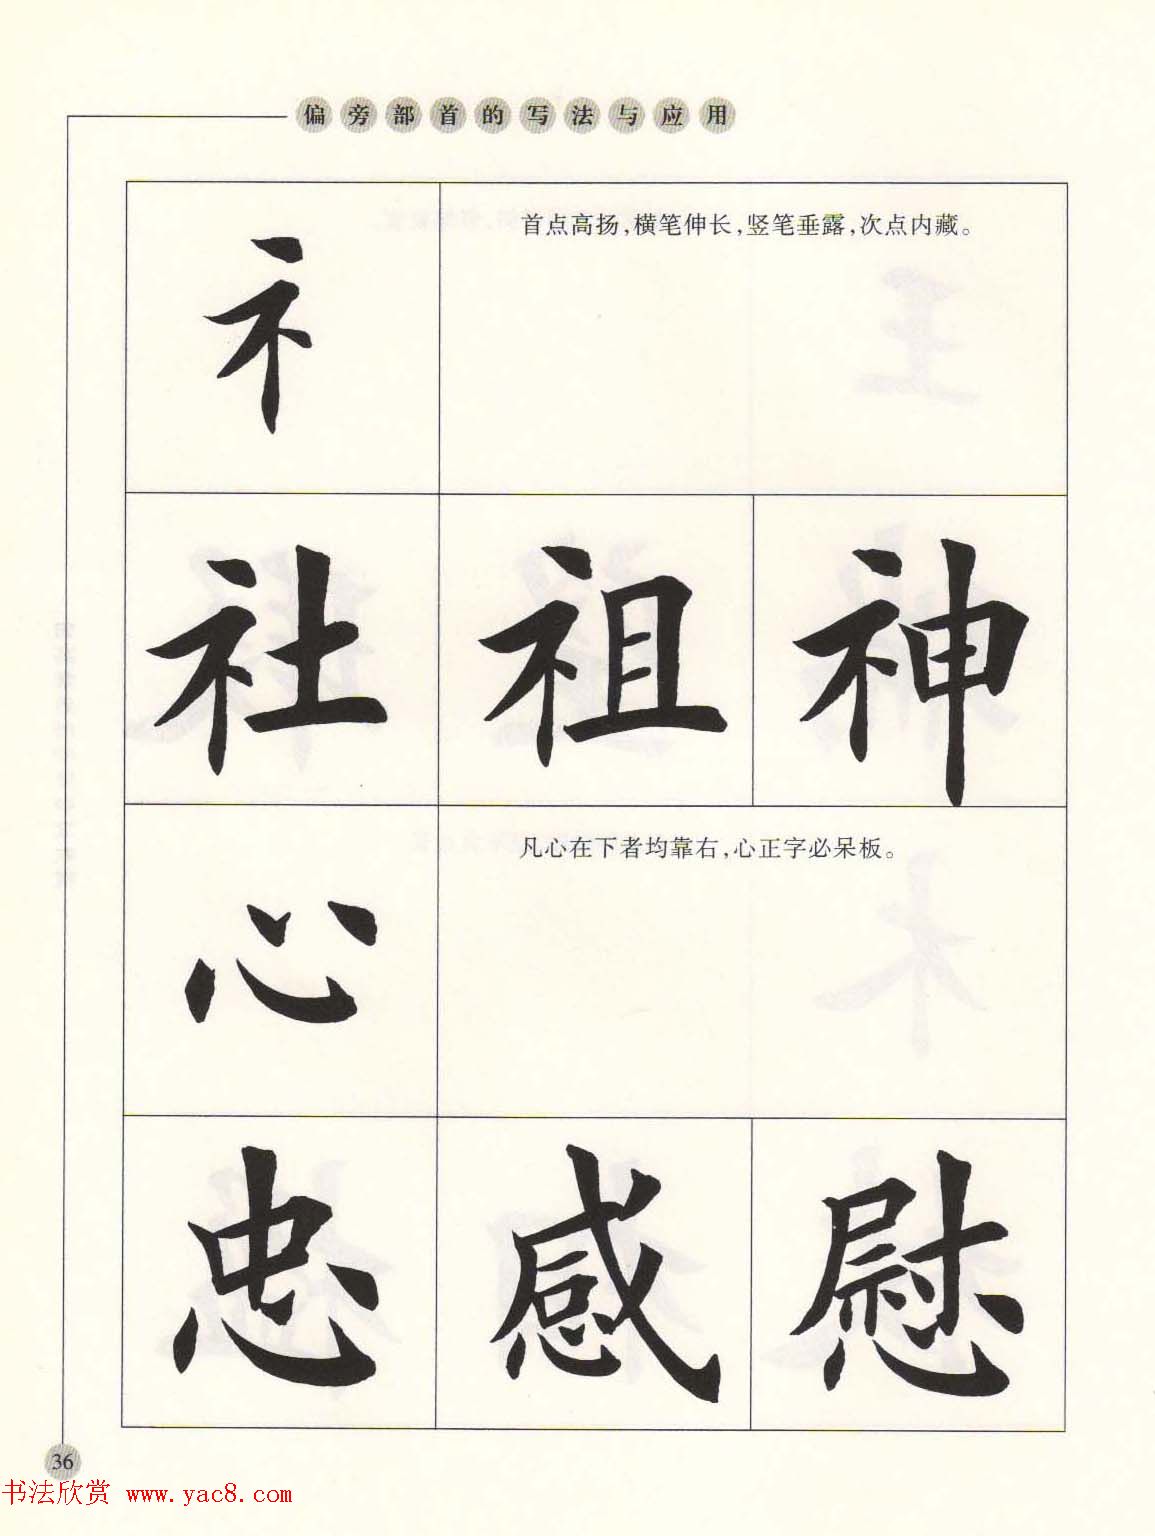 偏旁部首的写法与应用
礻
首点高扬,横笔伸长,竖笔垂露,次点内藏。
社 祖 神
心
凡心在下者均靠右,心正字必呆板。
忠 感 慰
36
书法欣赏 www.yac8.com